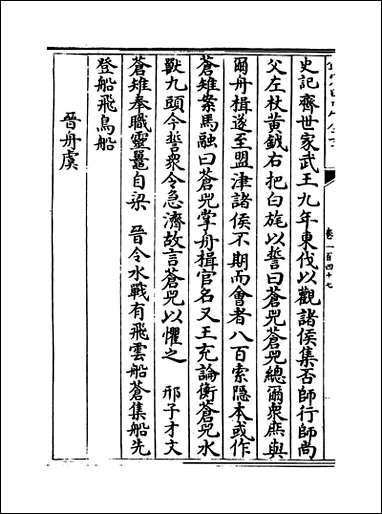 卷一百四十七
史記齊世家武王九年東伐以觀諸侯集否師行師尚
父左杖黃鉞右把白旄以誓曰蒼兕蒼兕總爾衆庶與
爾舟楫遂至盟津諸侯不期而會者八百索隱本或作
蒼雉案馬融曰蒼兕掌舟楫官名又王充論衡蒼兕水
獸九頭今誓衆令急濟故言蒼兕以懼之 邢子才文
蒼雉奉職靈鼉自梁 晉令水戰有飛雲船蒼隼船先
登船飛鳥船
晉舟虞